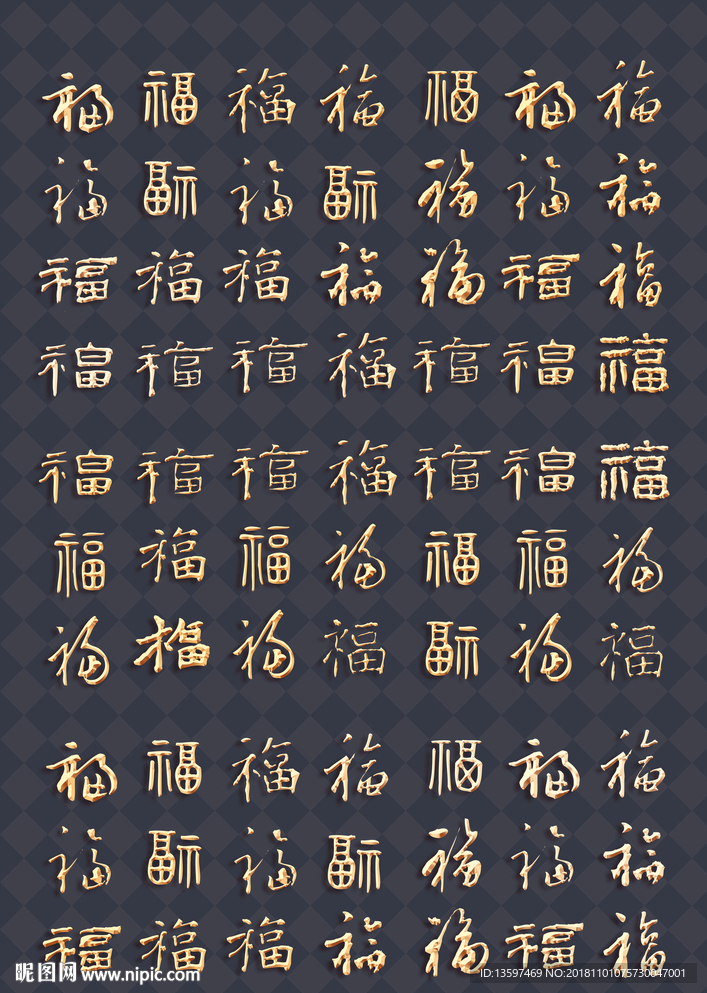 福福福福福福福
福福福福福福福
福福福福福福福
福福福福福福福
福福福福福福福
福福福福福福福
福福福福福福福
福福福福福福福
福福福福福福福
福福福福福福福
昵图网 www.nipic.com ID:13597469 NO:20181101075730047001